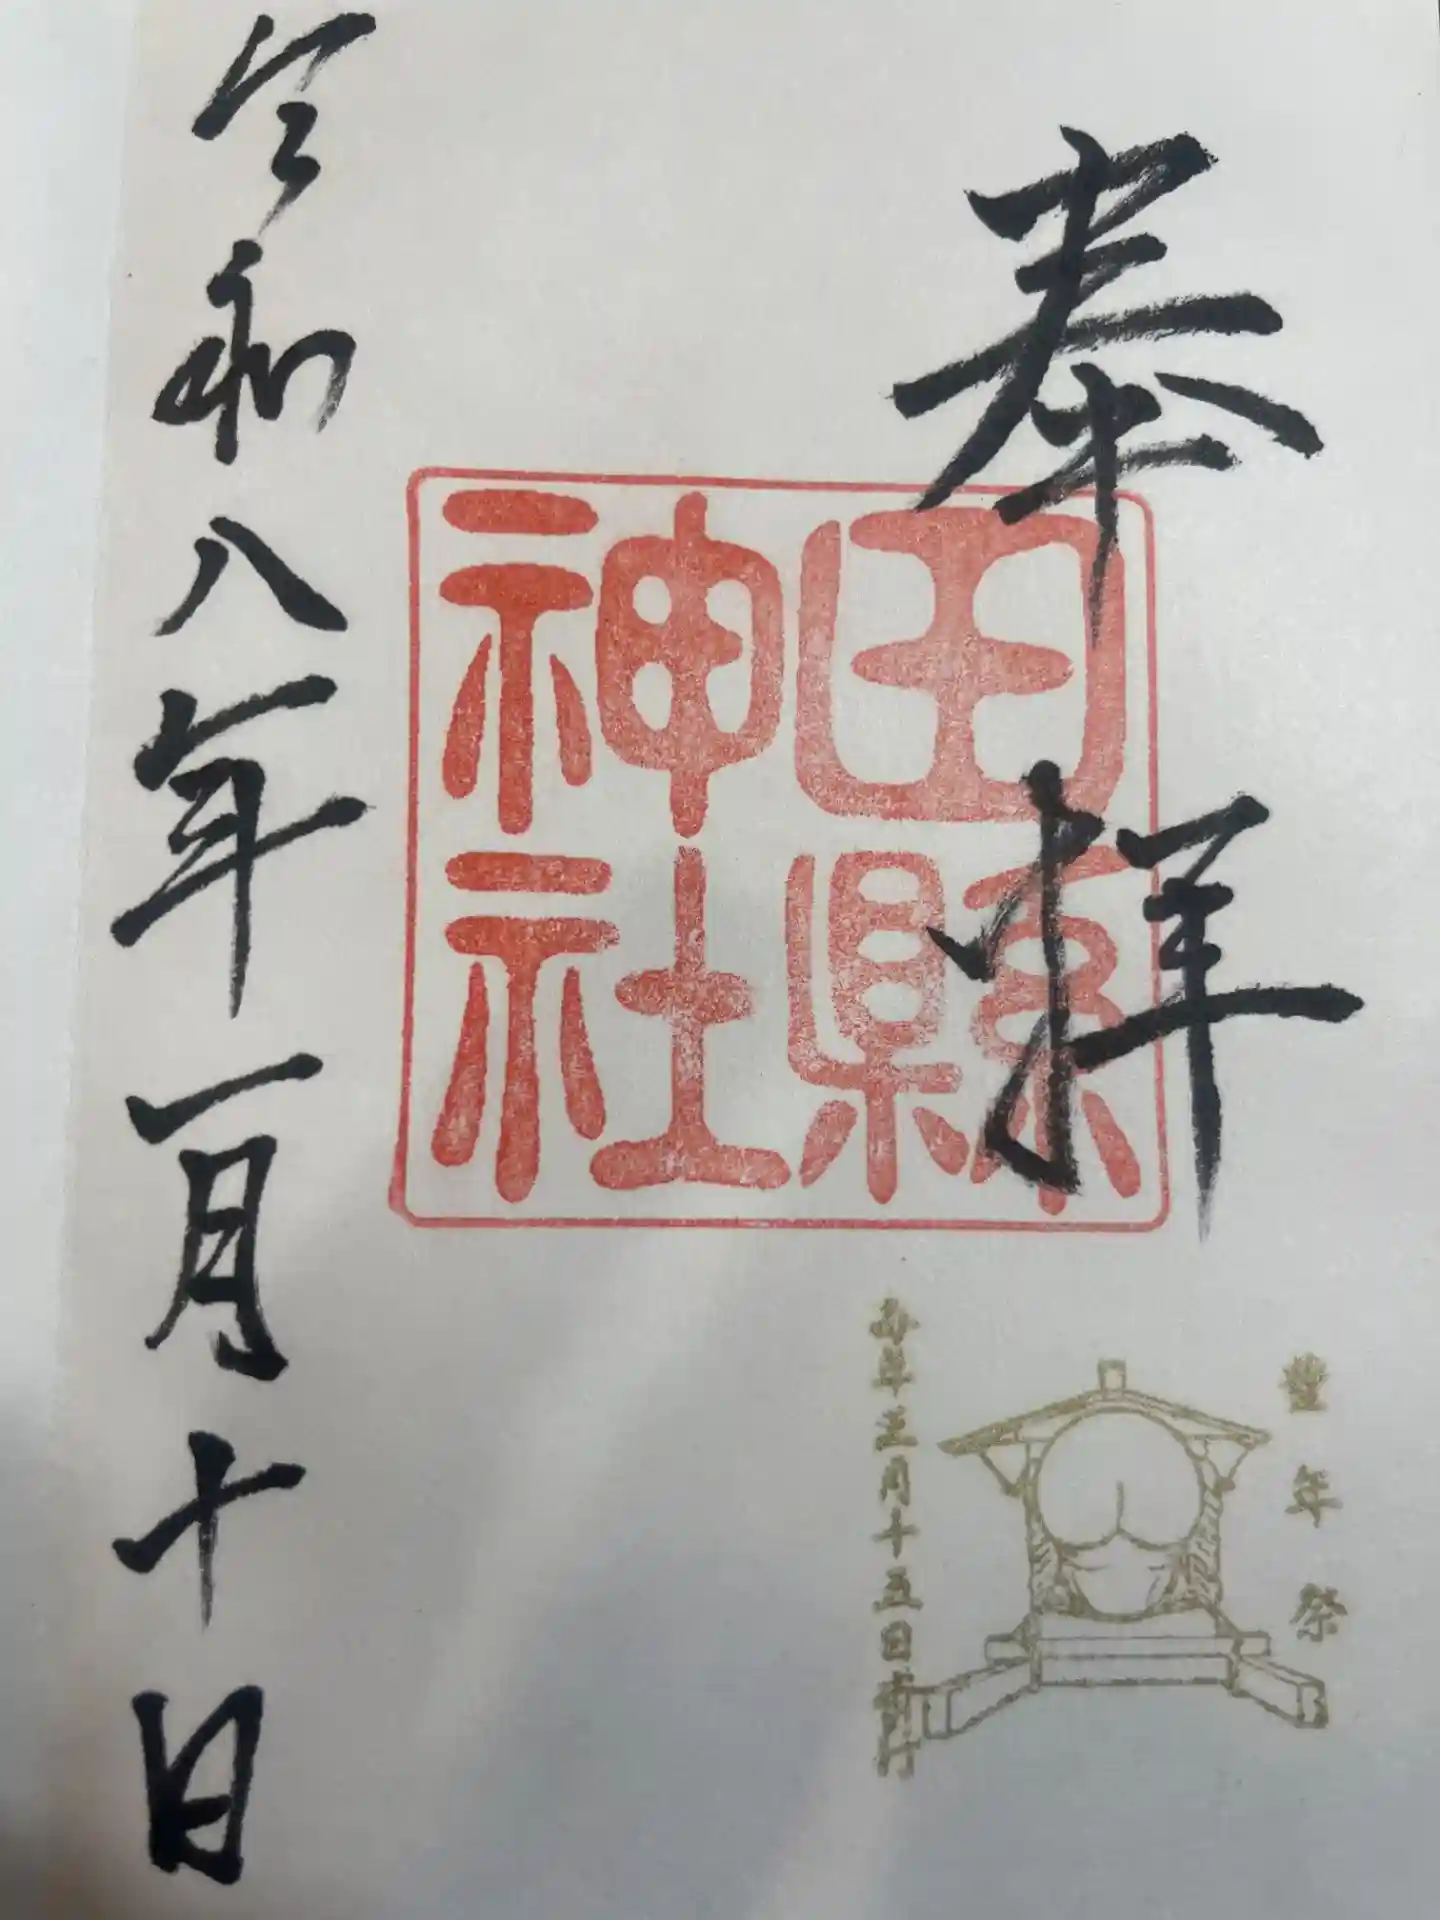 奉拝
田縣
神社
豊年祭
毎年三月十五日斎行
令和八年一月十日